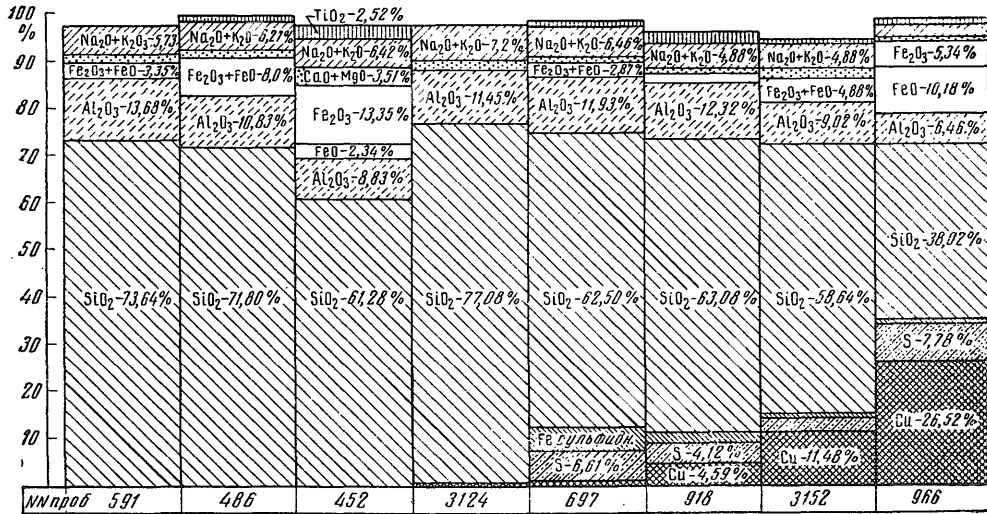 100
%
90
80
70
60
50
40
30
20
10
Na₂O+K₂O-5,73
Fe₂O₃+FeO-3,35%
Al₂O₃-13,68%
SiO₂-73,64%
Na₂O+K₂O-6,27%
Fe₂O₃+FeO-8,0%
Al₂O₃-10,83%
SiO₂-71,80%
TiO₂-2,52%
Na₂O+K₂O-6,42%
CaO+MgO-3,51%
Fe₂O₃-13,35%
FeO-2,34%
Al₂O₃-8,83%
SiO₂-61,28%
Na₂O+K₂O-7,2%
Al₂O₃-11,45%
SiO₂-77,08%
Na₂O+K₂O-6,46%
Fe₂O₃+FeO-2,87%
Al₂O₃-11,93%
SiO₂-62,50%
Fe сульфидн.
S-6,61%
Na₂O+K₂O-4,88%
Al₂O₃-12,32%
SiO₂-63,08%
S-4,12%
Cu-4,59%
Na₂O+K₂O-4,88%
Fe₂O₃+FeO-4,88%
Al₂O₃-9,02%
SiO₂-58,64%
Cu-11,48%
Fe₂O₃-5,34%
FeO-10,18%
Al₂O₃-6,46%
SiO₂-38,02%
S-7,78%
Cu-26,52%
NN проб 591 486 452 3124 697 918 3152 966